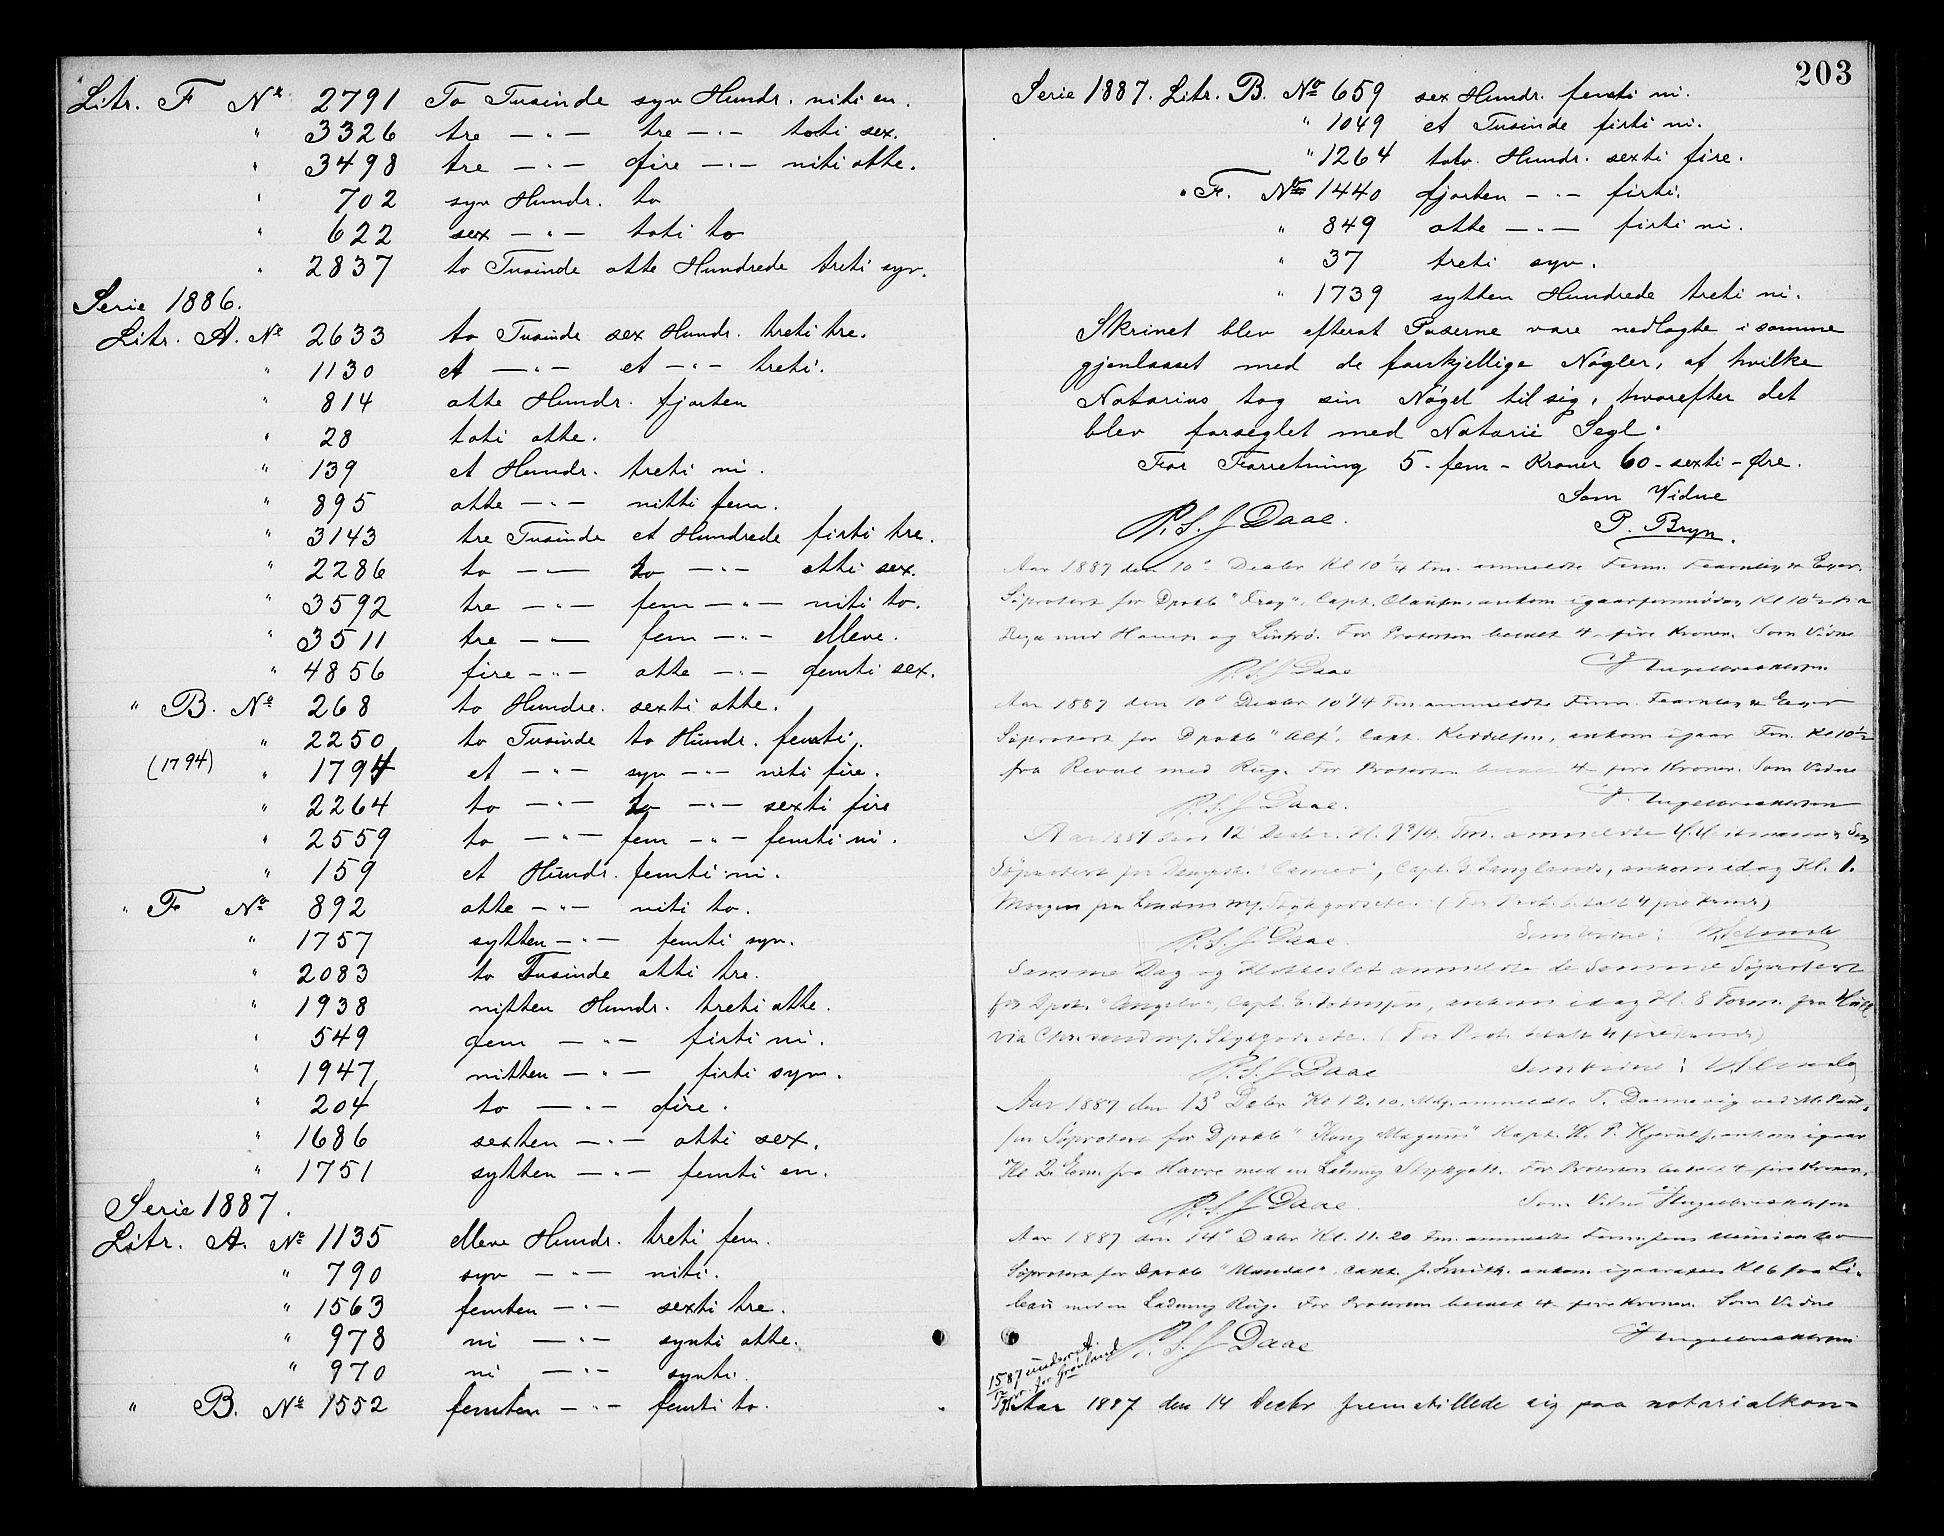 Litr. F No 2791 To Tusinde syv Hundr. niti en.
" 3326 tre — " — tre — " — toti sex.
" 3498 tre — " — fire — " — niti otte.
" 702 syv Hundr. to
" 622 sex — " — toti to
" 2837 to Tusinde otte Hundrede treti syv.
Serie 1886.
Litr. A. No 2633 to Tusinde sex Hundr. treti tre.
" 1130 et — " — et — " — treti.
" 814 otte Hundr. fjorten
" 28 toti otte.
" 139 et Hundr. treti ni.
" 895 otte — " — nitti fem.
" 3143 tre Tusinde et Hundrede firti tre.
" 2286 to — " — to — " — otti sex.
" 3592 tre — " — fem — " — niti to.
" 3511 tre — " — fem — " — elleve.
" 4856 fire — " — otte — " — femti sex.
" B. No 268 to Hundre. sexti otte.
" 2250 to Tusinde to Hundr. femti.
(1794) " 1794 et — " — syv — " — niti fire.
" 2264 to — " — to — " — sexti fire
" 2559 to — " — fem — " — femti ni.
" 159 et Hundr. femti ni.
" F No 892 otte — " — niti to.
" 1757 sytten — " — femti syv.
" 2083 to Tusinde otti tre.
" 1938 nitten Hundr. treti otte.
" 549 fem — " — firti ni.
" 1947 nitten — " — firti syv.
" 204 to — " — fire.
" 1686 sexten — " — otti sex.
" 1751 sytten — " — femti en.
Serie 1887.
Litr. A. No 1135 elleve Hundr. treti fem.
" 790 syv — " — niti.
" 1563 femten — " — sexti tre.
" 978 ni — " — synti otte.
" 970 ni — " — synti.
" B. No 1552 femten — " — femti to.
203
Serie 1887. Litr. B. No 659 sex Hundr. femti ni.
" 1049 et Tusinde firti ni.
" 1264 tolv. Hundr. sexti fire.
" F. No 1440 fjorten — " — firti.
" 849 otte — " — firti ni.
" 37 treti syv.
" 1739 sytten Hundrede treti ni.
Skrinet blev efterat Poserne vare nedlagte i samme
gjenlaaset med de forskjellige Nøgler, af hvilke
Notarius tog sin Nøgel til sig, hvorefter det
blev forseglet med Notarii Segl.
For Forretning 5 - fem - Kroner 60 - sexti - Øre.
Som Vidne
P.S.J Daae. P. Bryn.
Aar 1887 den 10de Decbr Kl 10 1/4 Fm. anmeldte Firm. Fearnley & Eger
Søprotest for Dpskb "Frey", Capt. Clausen, ankom igaar formiddag Kl 10 1/2 fra
Riga med Hamp og Linfrø. For Protesten betalt 4 - fire Kroner. Som Vidne
P.S.J Daae J Engelbrechtsen
Aar 1887 den 10de Decbr 10 1/4 Fm anmeldte Firm. Fearnley & Eger
Søprotest for Dpskb "Alf", Capt. Kiddelsen, ankom igaar Fm. Kl 10 1/2
fra Reval med Rug. For Protesten betalt 4 - fire Kroner. Som Vidne
P.S.J Daae. J. Engelbrechtsen
Aar 1887 den 12 Decbr. Kl. 9 3/4 Fm. anmeldte H. Heitmann & Søn
Søprotest for Dampsk. "Cameo", Capt. G. Langlands, ankom idag Kl. 1.
Morgen fra London m/ Stykgods etc. (For Prot. betalt 4 fire Kroner)
P.S.J Daae. Som Vidne:
Samme Dag og Klokkeslet anmeldte de Samme Søprotest
for Dpsk. "Angelo", Capt. ankom idag Kl. 8 Form. fra Hull
via Chr.sand m/ Stykgods etc. (For Prot. betalt 4 fire Kroner)
P.S.J Daae Som Vidne:
Aar 1887 den 13de Decbr Kl 12.10. Mdg. anmeldte T. Dannevig ved
Søprotest for Dpskb "Kong Magnus" Kapt. H. P. Hjerulf, ankom igaar
Kl 2 Em. fra Havre med en Ladning Stykgods. For Protesten betalt 4 fire Kroner.
P.S.J Daae. Som Vidne J Engelbrechtsen
Aar 1887 den 14de Decbr Kl. 11.20 Fm. anmeldte Firm
Søprotest for Dpskb "Mandal" Capt. J. Smith. ankom igaaraften Kl 6 fra Li-
bau med en Ladning Rug. For Protesten betalt 4 - fire Kroner. Som Vidne
P.S.J Daae J Engelbrechtsen
1587
for Grønland
Aar 1887 den 14 Decbr fremstillede sig paa notarialkon-